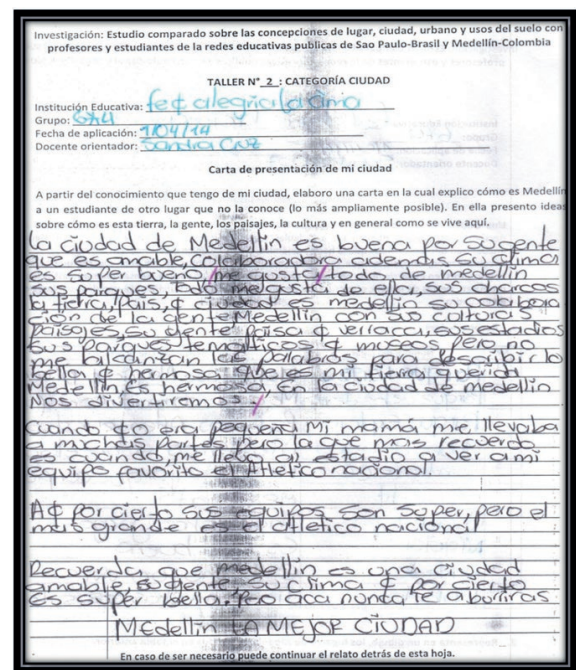 Investigación: Estudio comparado sobre las concepciones de lugar, ciudad, urbano y usos del suelo con
profesores y estudiantes de la redes educativas publicas de Sao Paulo-Brasil y Medellín-Colombia
TALLER N°_2_: CATEGORÍA CIUDAD
Institución Educativa: fe y alegria la cima
Grupo: 6x4
Fecha de aplicación: 1/04/14
Docente orientador: Sandra Cruz
Carta de presentación de mi ciudad
A partir del conocimiento que tengo de mi ciudad, elaboro una carta en la cual explico cómo es Medellín
a un estudiante de otro lugar que no la conoce (lo más ampliamente posible). En ella presento ideas
sobre cómo es esta tierra, la gente, los paisajes, la cultura y en general como se vive aquí.
La ciudad de Medellin es buena por su gente
que es amable, colaboradora además su clima
es super bueno, me gusta todo de medellin
sus parques, todo me gusta de ella, sus charcos
la tierra, país, y ciudad es medellin su colabora
ción de la gente Medellin con sus culturas
paisajes, su gente paisa y verraca, sus estadios
sus parques tematicos y museos pero no
me alcanzan las palabras para describir lo
bella y hermosa que es mi tierra querida
Medellin, es hermosa, en la ciudad de medellin
nos divertiremos.
Cuando yo era pequeña mi mamá me llevaba
a muchas partes pero la que mas recuerdo
es cuando me llevo al estadio a ver a mi
equipo favorito el Atletico nacional.
Ay por cierto sus equipos son super, pero el
mas grande es el atletico nacional
Recuerda que medellin es una ciudad
amable, su gente, su clima y por cierto
es super bella, pero aca nunca te aburriras
MEdellin LA MEJOR CIUDAD
En caso de ser necesario puede continuar el relato detrás de esta hoja.